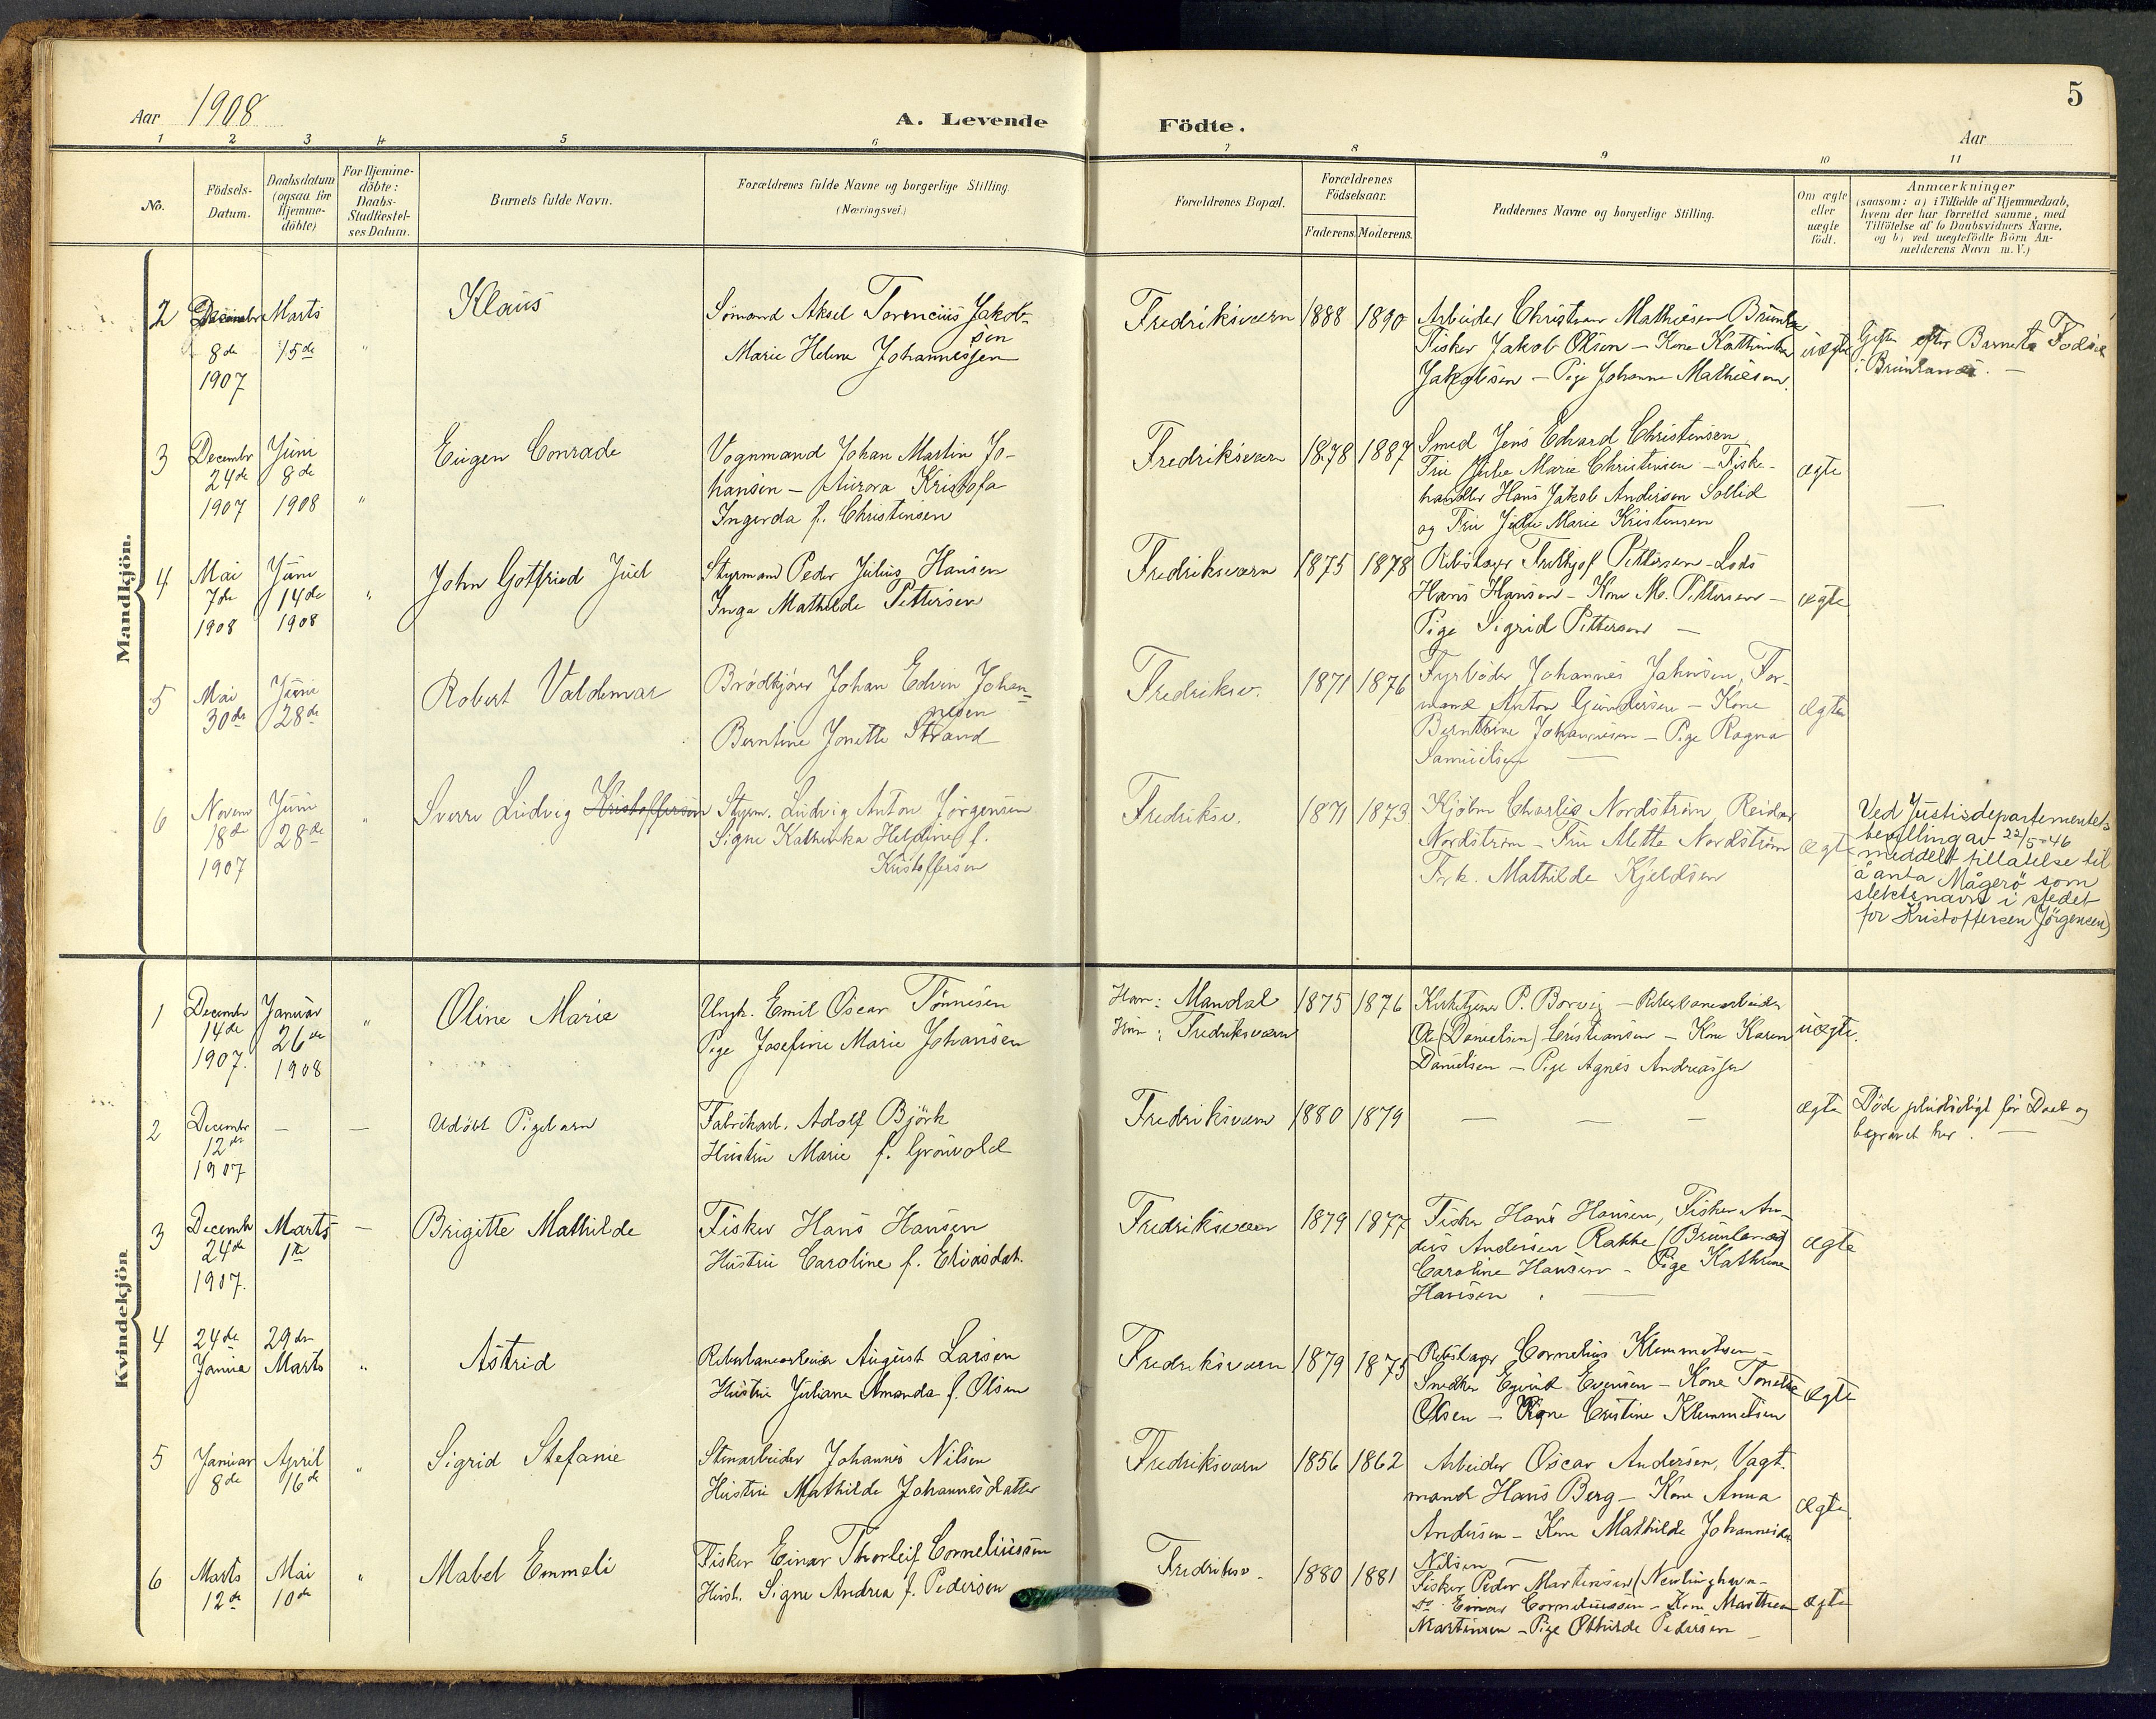 5
Aar 1908
A. Levende Födte.
Aar
1 2 3 4 5 6 7 8 9 10 11
No.
Födsels-
Datum.
Daabsdatum
(ogsaa for
Hjemme-
döbte)
For Hjemme-
döbte:
Daabs-
Stadfæstel-
ses Datum.
Barnets fulde Navn.
Forældrenes fulde Navne og borgerlige Stilling.
(Næringsvei.)
Forældrenes Bopæl.
Forældrenes
Födselsaar.
Faderens. Moderens.
Faddernes Navne og borgerlige Stilling.
Om ægte
eller
uægte
födt.
Anmærkninger
(saasom: a) i Tilfælde af Hjemmedaab,
hvem der har forrettet samme, med
Tilföielse af to Daabsvidners Navne.
og b) ved uægtefödte Börn An-
melderens Navn m. V.)
Mandkjön.
2
Decembr
8de
1907
Marts
15de
"
Klaus
Sömand Aksel Torencius Jakob-
sen
Marie Helene Johannessen
Fredriksværn
1888
1890
Arbeider Christian Mathiesen
Fisker Jakob Olsen – Kone Kathinka
Jakobsen – Pige Johanne Mathiesen.
uægte
Gifte efter Barnets Fødsel
i Brunlanæs. –
3
Decembr
24de
1907
Juni
8de
1908
"
Eugen Conrade
Vognmand Johan Martin Jo-
hansen – Aurora Kristofa
Ingerda f. Christensen
Fredriksværn
1878
1887
Smed Jens Edvard Christensen
Fru Julie Marie Christensen – Fiske-
handler Hans Jakob Andersen Sollid
og Fru Julie Marie Kristensen
ægte
—
4
Mai
7de
1908
Juni
14de
1908
"
John Gotfried Juel
Styrmand Peder Julius Hansen
Inga Mathilde Pettersen
Fredriksværn
1875
1878
Rebslager Frithjof Pettersen – Lods
Hans Hansen – Kone M. Pettersen –
Pige Sigrid Pettersen –
ægte
5
Mai
30de
Juni
28de
Robert Valdemar
Brödkjörer Johan Edvin Johan-
nesen
Berntine Jonette Strand
Fredriksv.
1871
1876
Fyrböder Johannes Jahnsen, For-
mand Anton Gundersen – Kone
Berntine Johannesen – Pige Ragna
Samuelsen —
ægte
6
Novem
18de
1907
Juni
28de
"
Sverre Ludvig Kristoffersen
Styrm. Ludvig Anton Jörgensen
Signe Kathinka Heldine f.
Kristoffersen
Fredriksv.
1871
1873
Kjöbm Charles Nordström Reidar
Nordström – Fru Alette Nordström
Frk. Mathilde Kjeldsen
ægte
Ved Justisdepartementets
bevilling av 22/5-46
meddelt tillatelse til
å anta Mågerö som
slektsnavn i stedet
for Kristoffersen (Jörgensen)
Kvindekjön
1
Decembr
14de
1907.
Januar
26de
1908
"
Oline Marie
Ungk. Emil Oscar Tönnesen
Pige Josefine Marie Johansen
Ham: Mandal
Hun: Fredriksværn
1875
1876
Kirketjener P. Borvig – Reberbanearbeider
(Danielsen) Cristiansen – Kone Karen
Danielsen – Pige Agnes Andreassen
uægte.
2
Decembr
12de
1907
–
—
Udöbt Pigebarn
Fabrikarb. Adolf Björk
Hustru Marie f. Grönvold
Fredriksværn
1880
1879
— — —
ægte
Döde pludseligt för Daab og
begravet her. —
3
Decembr
24de
1907.
Marts
1ste
–
Brigitte Mathilde
Fisker Hans Hansen
Hustru Caroline f. Eliasdat.
Fredriksværn
1879
1877
Fisker Hans Hansen, Fisker An-
ders Andersen Rakke (Brunlanæs)
Caroline Hansen – Pige Kathrine
Hansen. —
ægte
4
24de
Janua
29de
Marts
"
Astrid
Reberbanearbeider August Larsen
Hustru Juliane Amanda f. Olsen
Fredriksværn
1879
1875
Rebslager Cornelius Klemmetsen –
Snedker Evensen – Kone Tonette
Olsen – Cristine Klemmetsen
ægte
5
Januar
8de
April
16de
"
Sigrid Stefanie
Stenarbeider Johannes Nilsen
Hustru Mathilde Johannesdatter
Fredriksværn
1856
1862
Arbeider Oscar Andersen, Vagt-
mand Hans Berg – Kone Anna
Andersen – Kone Mathilde Johannesda
Nilsen
ægte
6
Marts
12de
Mai
10de
"
Mabel Emmeli
Fisker Einar Thorleif Corneliussen
Hust. Signe Andrea f. Pedersen
Fredriksv.
1880
1881
Fisker Peder Martinsen (Nevlunghavn –
do Einar Corneliussen – Kone Marthea
Martinsen – Pige Othilde Pedersen –
ægte